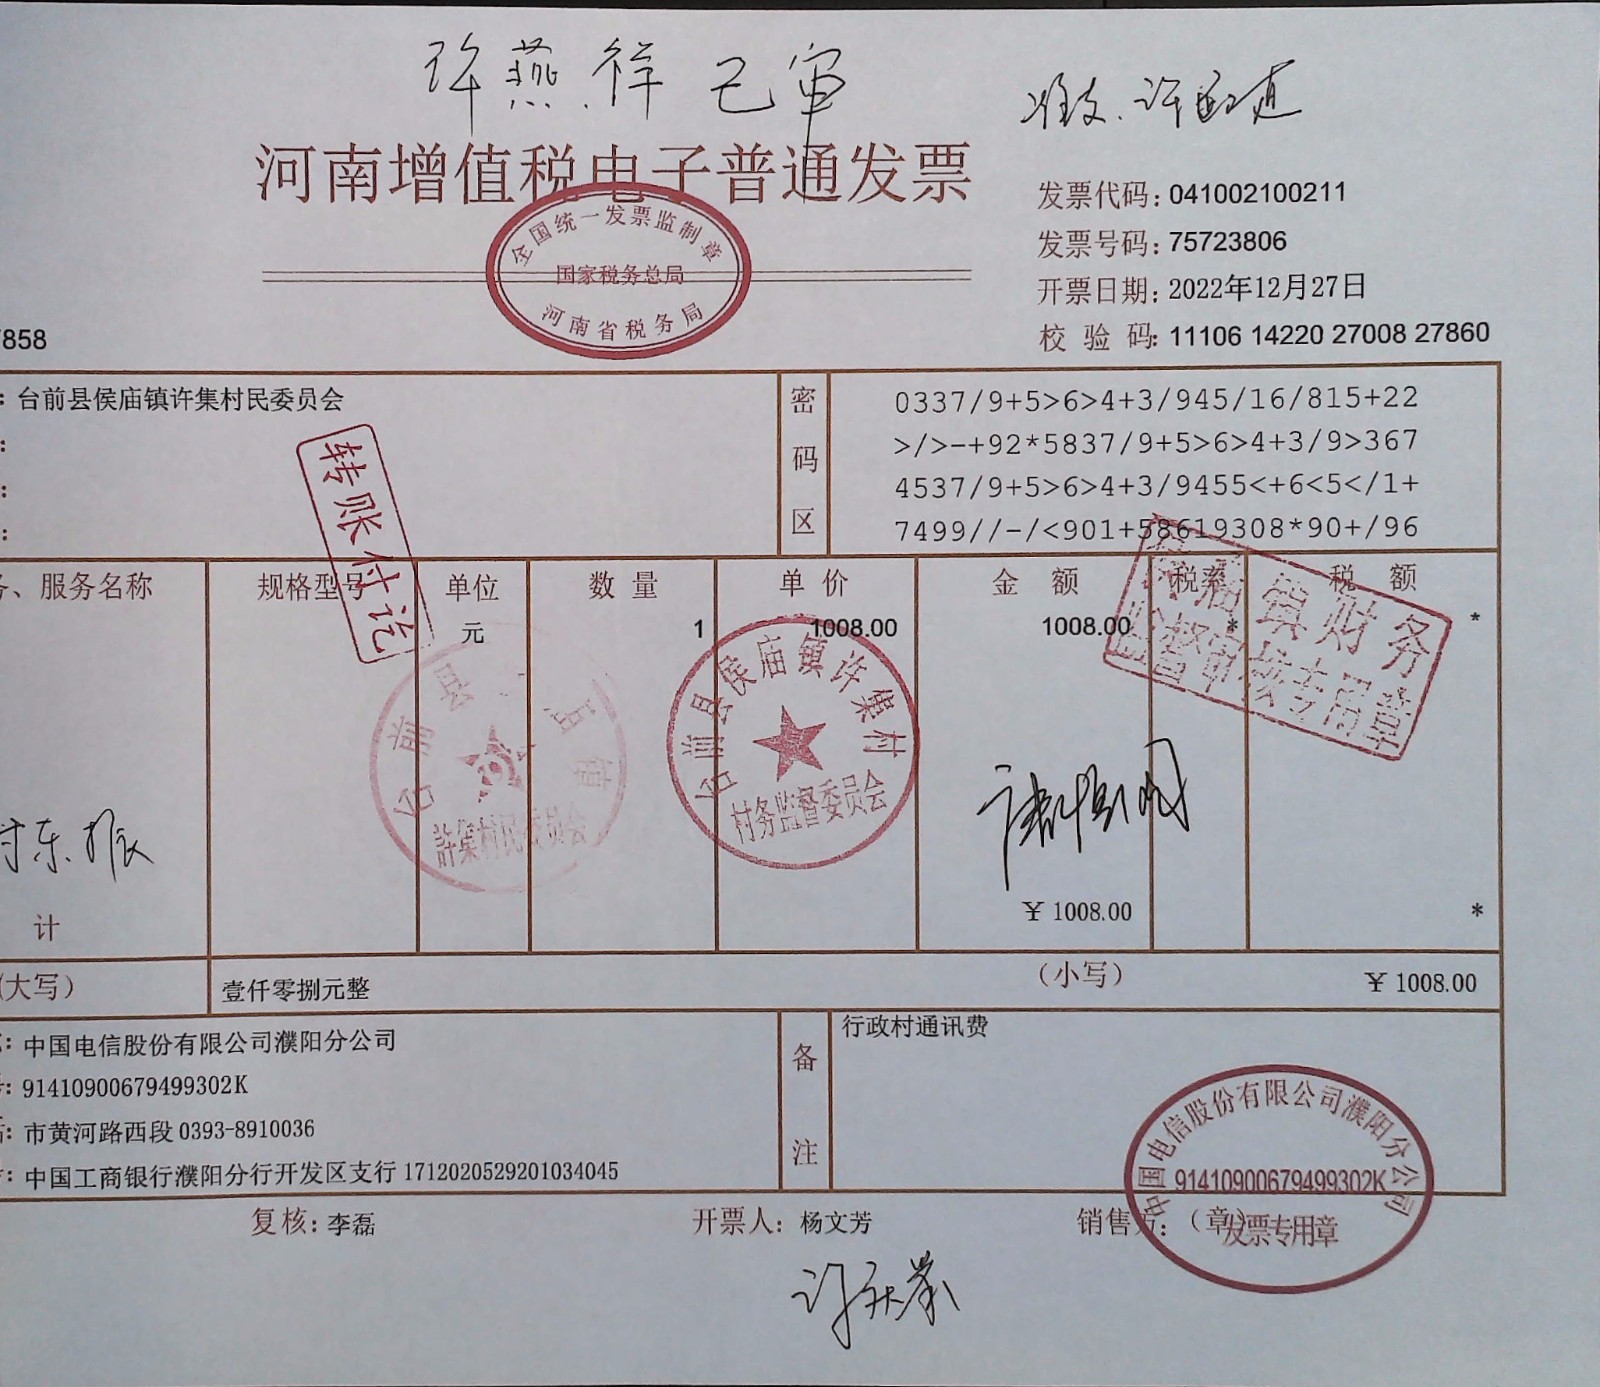 许燕祥已审
准支.许
河南增值税电子普通发票
全国统一发票监制章
国家税务总局
河南省税务局
发票代码: 041002100211
发票号码: 75723806
开票日期: 2022年12月27日
校验码: 11106 14220 27008 27860
858
: 台前县侯庙镇许集村民委员会
:
:
:
密码区
0337/9+5>6>4+3/945/16/815+22
>/>-+92*5837/9+5>6>4+3/9>367
4537/9+5>6>4+3/9455<+6<5</1+
7499//-/<901+58619308*90+/96
转账付讫
、服务名称 规格型号 单位 数量 单价 金额 税率 税额
元 1 1008.00 1008.00 * *
侯庙镇财务
监督审核专用章
台前县侯庙镇
許集村民委员会
台前县侯庙镇许集村
村务监督委员会
东振
计 ¥1008.00 *
(大写) 壹仟零捌元整 (小写) ¥1008.00
: 中国电信股份有限公司濮阳分公司
: 91410900679499302K
: 市黄河路西段 0393-8910036
: 中国工商银行濮阳分行开发区支行 1712020529201034045
备注
行政村通讯费
中国电信股份有限公司濮阳分公司
91410900679499302K
发票专用章
复核: 李磊 开票人: 杨文芳 销售方: (章)
许